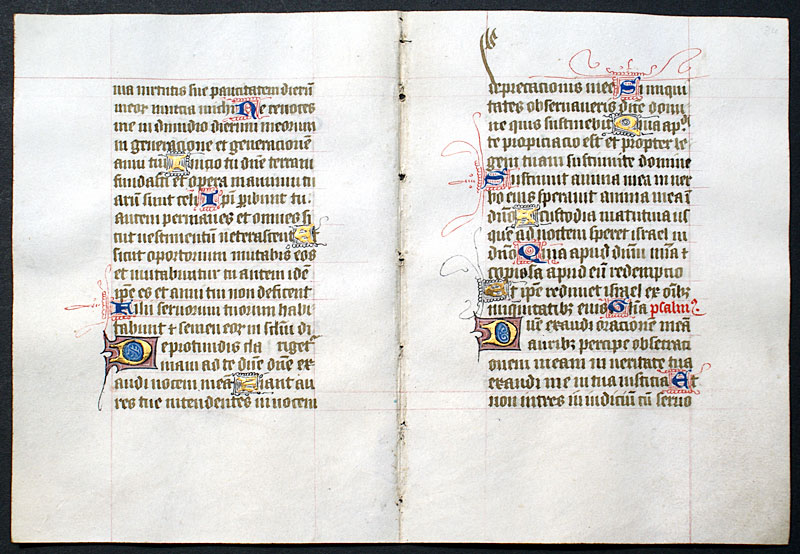 uia uirtutis sue paucitatem dierũ
meor nuncia michi Ne reuoces
me in dimidio dierum meorum
in generacione et generacionem
anni tui Inicio tu dñe terram
fundasti et opera manuum tu
arũ sunt celi Ipĩ pibunt tu
autem permanes et omnes si
cut uestimentũ ueterascent Et
sicut oportorium mutabis eos
et mutabuntur tu autem idẽ
ipẽ es et anni tui non deficient
Filii seruorum tuorum habi
tabunt et semen eor in sclm diri
De profundis cla riget
maui ad te dñe dñe ex
audi uocem meã Fiant au
res tue intendentes in uocem
deprecacionis mee Si iniqui
tates obseruaueris dñe domi
ne quis sustinebit Quia apd
te propiciacio est et propter le
gem tuam sustinui te domine
Sustinuit anima mea in uer
bo eius sperauit anima mea ĩ
dño A custodia matutina us
que ad noctem speret israel in
dño Quia apud dñm mĩa et
copiosa apud eũ redemptio
Et ipẽ redimet israel ex oĩbꝫ
iniquitatibꝫ eius Glĩa psalm9
Dñe exaudi oracionem meã
auribꝫ percipe obsecrati
onem meam in ueritate tua
exaudi me in tua iusticia Et
non intres in iudiciũ cũ seruo